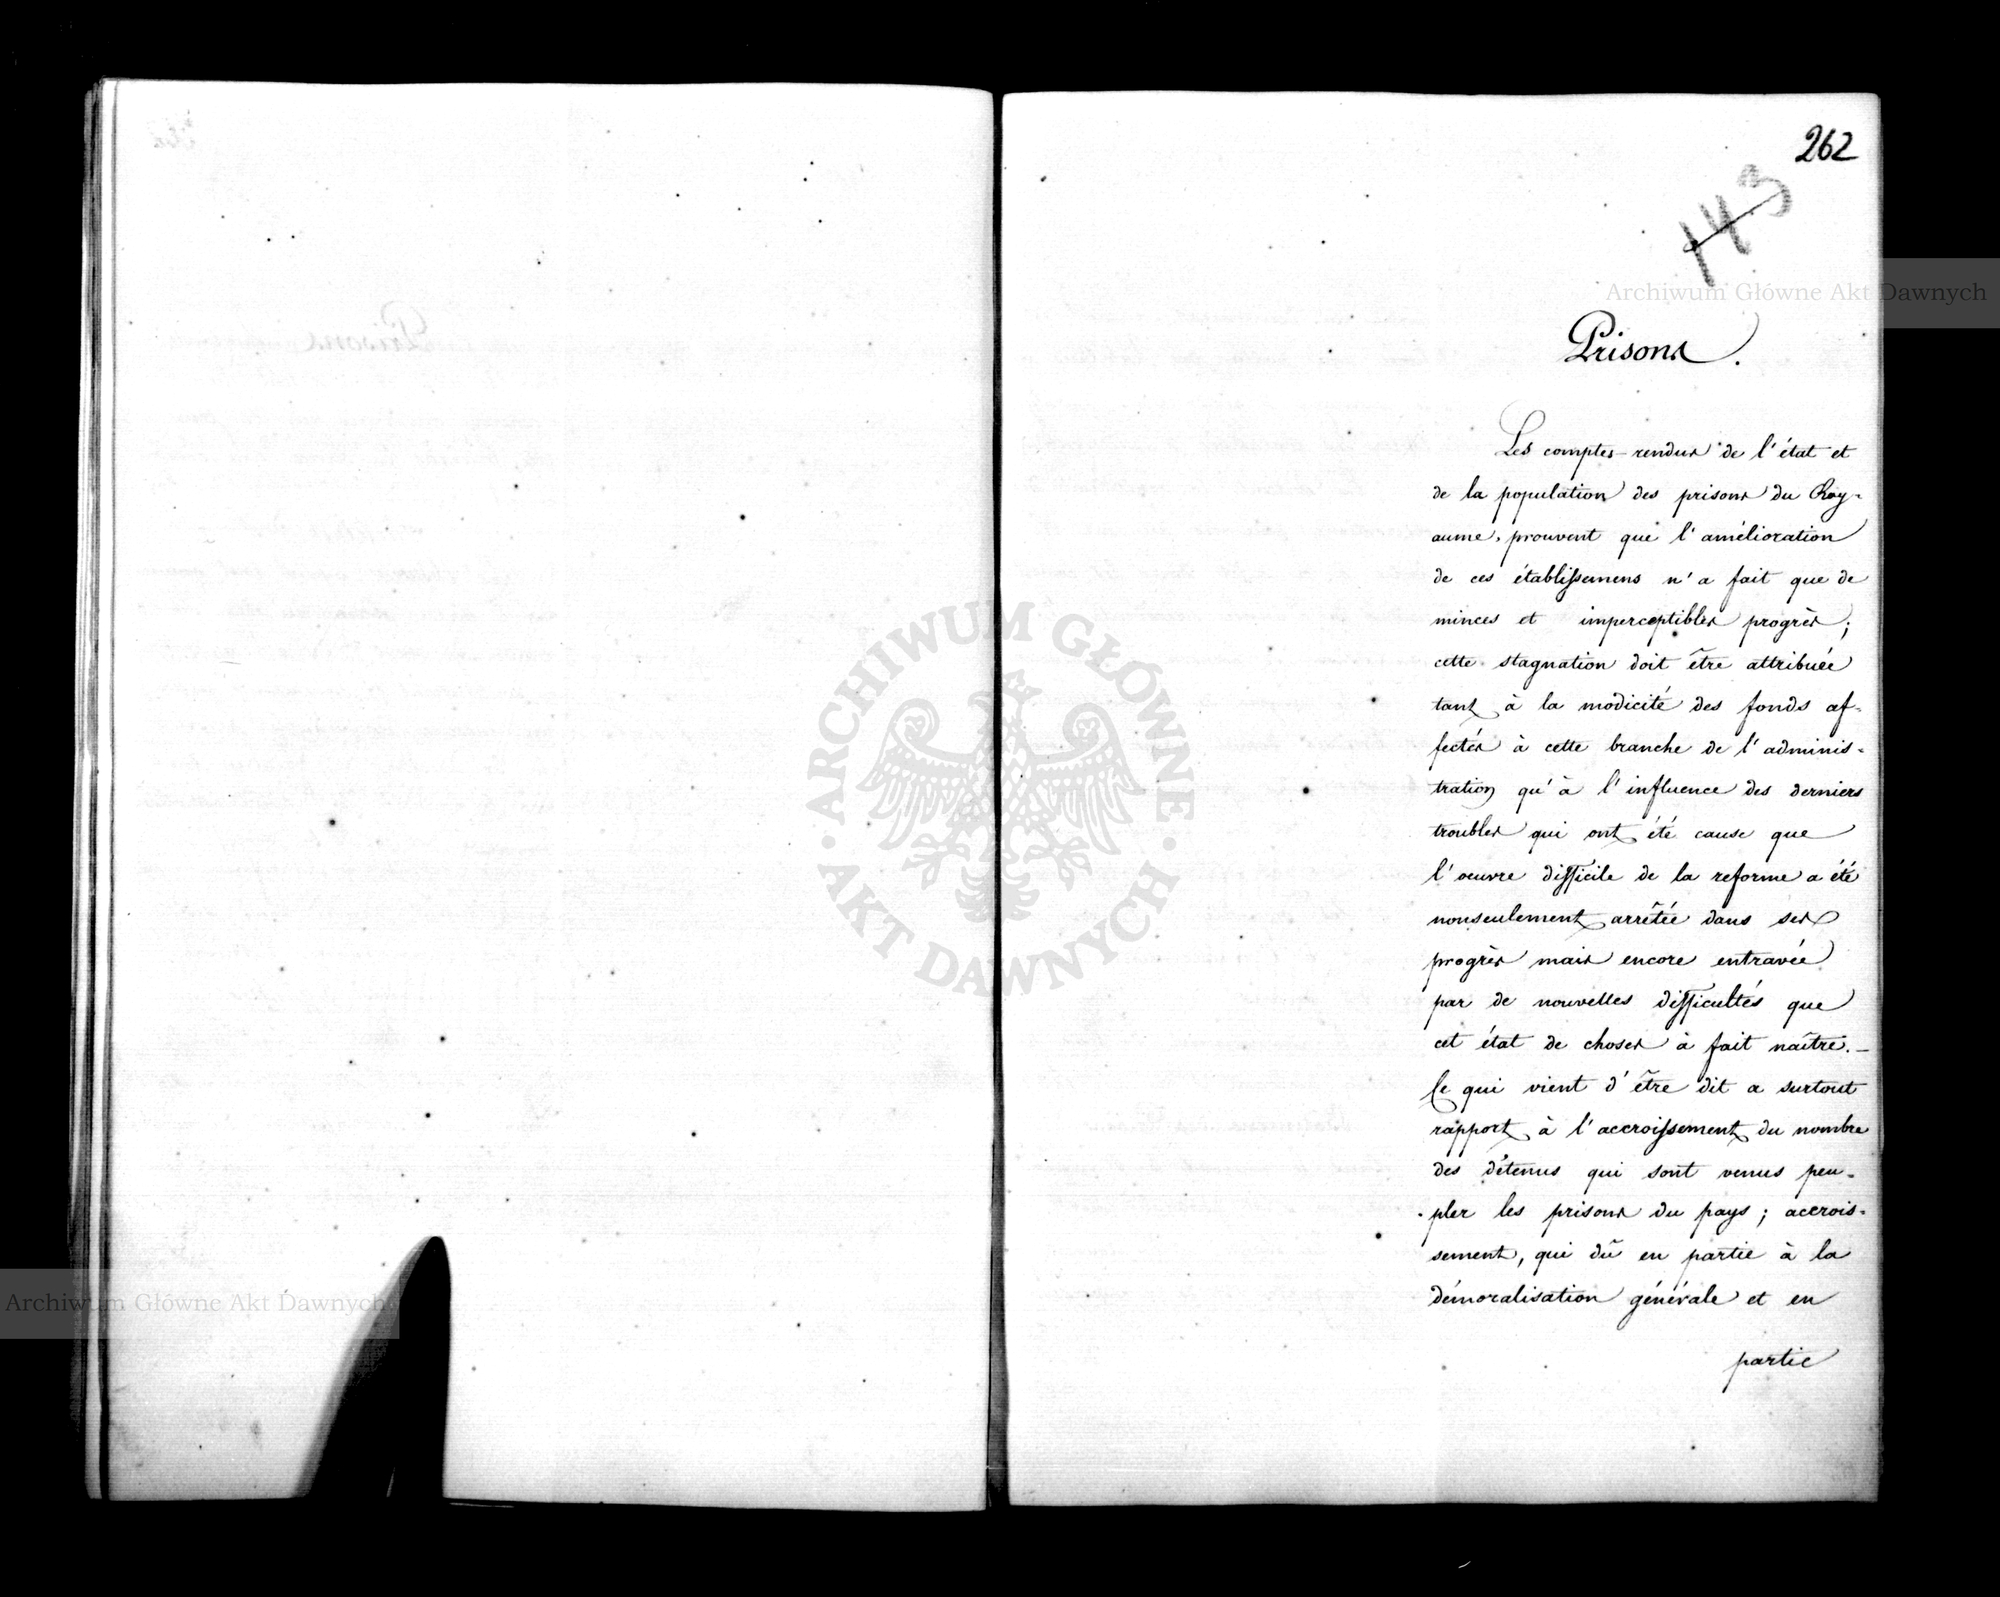 262
143
Archiwum Główne Akt Dawnych
Prisons.
Les comptes-rendus de l'état et
de la population des prisons du Roy-
aume, prouvent que l'amélioration
de ces établissemens n'a fait que de
minces et imperceptibles progrès;
cette stagnation doit être attribuée
tant à la modicité des fonds af-
fectés à cette branche de l'adminis-
tration qu'à l'influence des derniers
troubles qui ont été cause que
l'oeuvre difficile de la reforme a été
nonseulement arrêtée dans ses
progrès mais encore entravée
par de nouvelles difficultés que
cet état de choses à fait naître. —
Ce qui vient d'être dit a surtout
rapport à l'accroissement du nombre
des détenus qui sont venus peu-
pler les prisons du pays; accrois-
sement, qui dû en partie à la
démoralisation générale et en
partie
ARCHIWUM GŁÓWNE
AKT DAWNYCH
Archiwum Główne Akt Dawnych